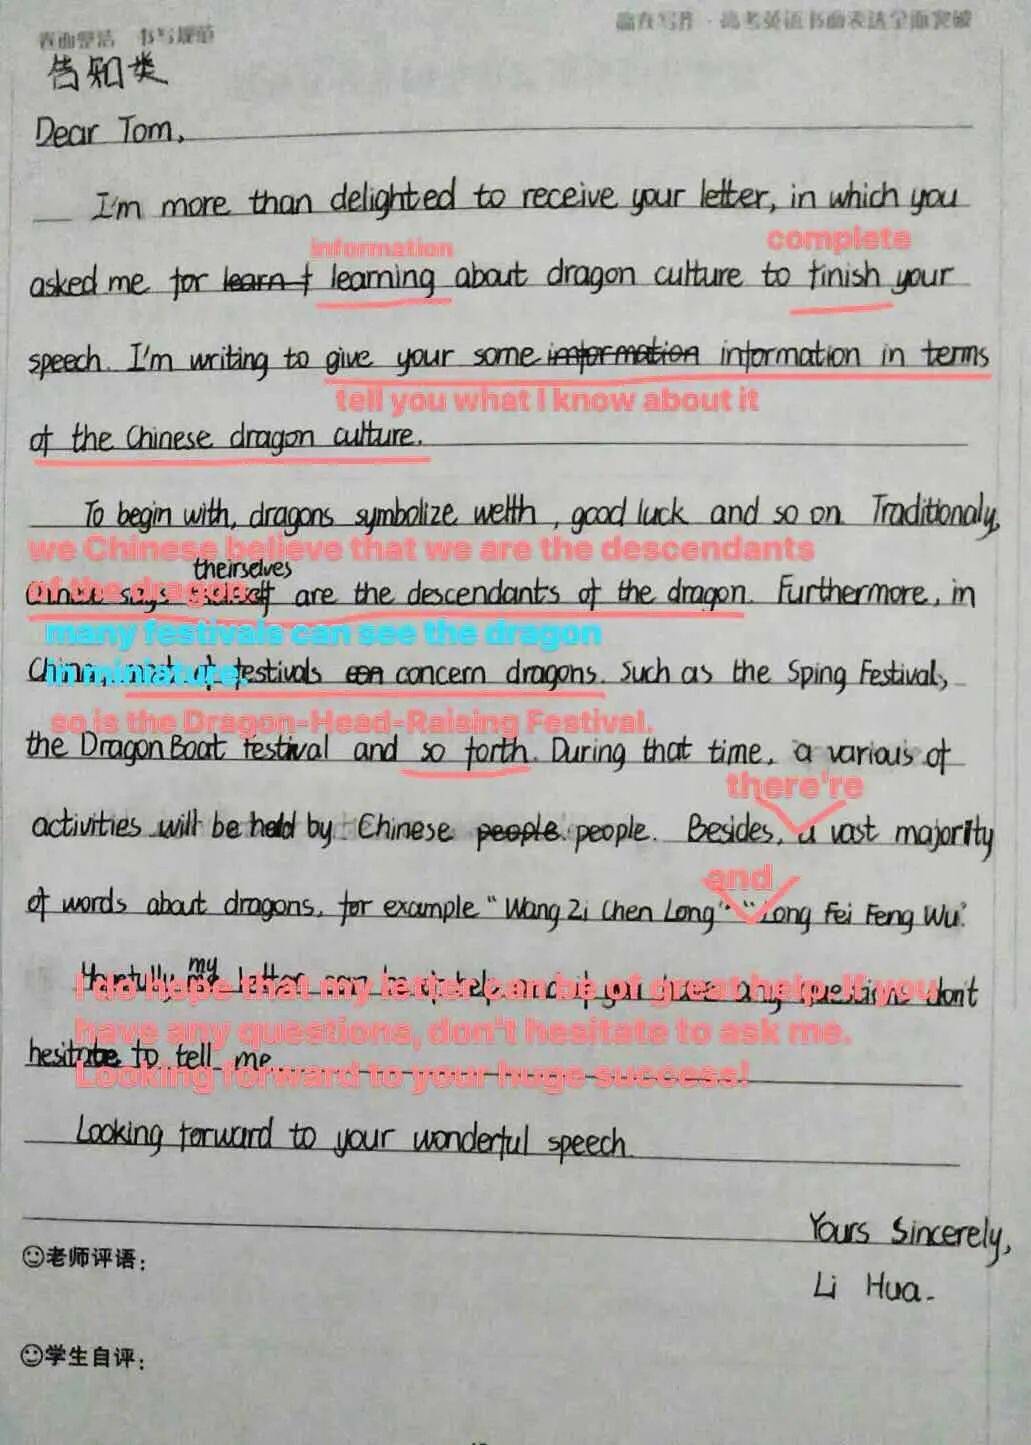 卷面整洁 书写规范
赢在写作·高考英语书面表达全面突破
告知类
Dear Tom,
I'm more than delighted to receive your letter, in which you
information
complete
asked me for learn f learning about dragon culture to finish your
speech. I'm writing to give your some imformation information in terms
tell you what I know about it
of the Chinese dragon culture.
To begin with, dragons symbolize welth, good luck and so on. Traditionaly,
we Chinese believe that we are the descendants
theirselves
of the dragon.
says are the descendants of the dragon. Furthermore, in
many festivals can see the dragon
in miniature.
China, most of festivals can concern dragons. Such as the Sping Festival,
so is the Dragon-Head-Raising Festival.
the Dragon Boat festival and so forth. During that time, a various of
there're
activities will be held by Chinese people people. Besides, a vast majority
and
of words about dragons, for example "Wang Zi Chen Long" "Long Fei Feng Wu".
my
letter can be help and if you have any questions don't
I do hope that my letter can be of great help. If you
have any questions, don't hesitate to ask me.
hesitate to tell me
Looking forward to your huge success!
Looking forward to your wonderful speech.
Yours Sincerely,
老师评语：
Li Hua.
学生自评：